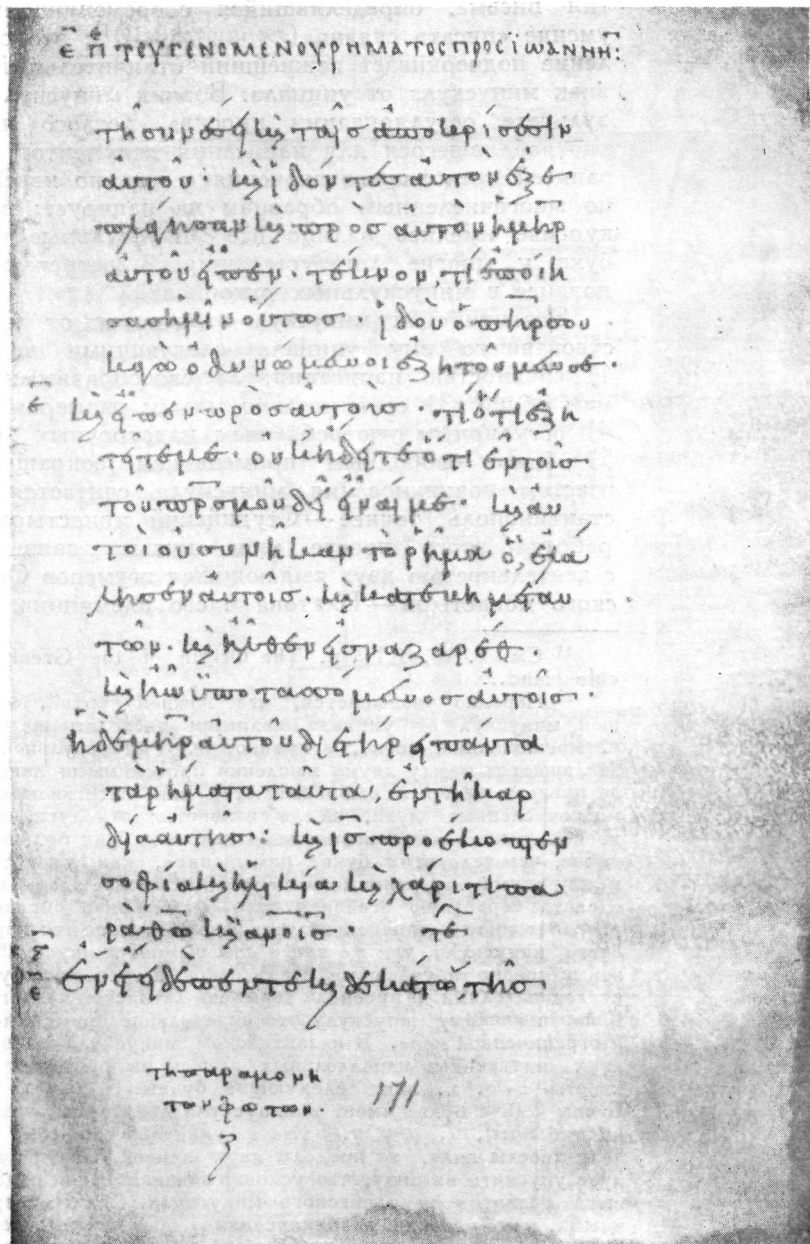 Ε Π ΤΕΥ ΓΕΝΟΜΕΝΟΥ ΡΗΜΑΤΟΣ ΠΡΟΣ ΙΩΑΝΝΗΝ
τῆ συνέσει κ̀ ταῖς ἀποκρίσεσιν
ἀυτοῦ· κ̀ ἰδόντες ἀυτὸν ἐξε
πλάγησαν κ̀ προς αυτον ἡ μη̅ρ̅
ἀυτοῦ εἶπεν· τέκνον τί ἐποίη
σας ἡμῖν οὕτως ἰδοὺ ὁ π̅η̅ρ̅ σου
κἀγὼ ὀδυνώμενοι ἐζητοῦμέν σε·
κ̀ εἶπεν προς αυτοις· τί ὅτι ἐζη
τεῖτέ με· ουκ ἤδειτε ὅτι ἐν τοῖς
τοῦ π̅ρ̅σ̅ μου δεῖ εἶναί με· κ̀ αυ
τοὶ οὐ συνῆκαν τὸ ρῆμα ὃ ἐλα
λησεν αυτοῖς· κ̀ κατέβη μετ αυ
τῶν· κ̀ ἦλθεν εἰς ναζαρέθ
κ̀ ἦν ὑποτασσόμενος αυτοῖς·
ἡ δὲ μ̅η̅ρ̅ αυτου διετήρει πάντα
τα ρήματα ταῦτα, ἐν τῆ καρ
δία αυτῆς: κ̀ ι̅ς̅ προέκοπτεν
σοφία κ̀ ἡλικία κ̀ χάριτι πα
ρα θ̅ω̅ κ̀ α̅ν̅ο̅ι̅ς̅ τε
ἐν ἔτει δὲ πεντεκ̀δεκάτω τῆς
τη παραμονη
των φωτων· 171